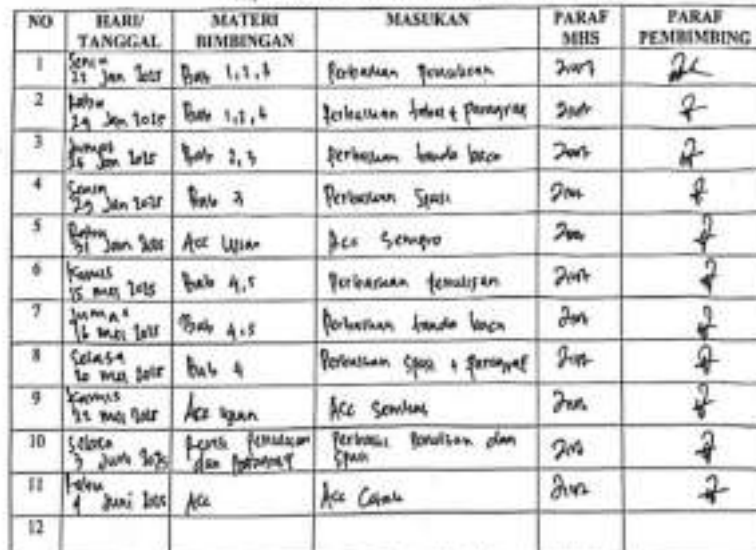 NO HARI/ TANGGAL MATERI BIMBINGAN MASUKAN PARAF MHS PARAF PEMBIMBING
1 Senin 22 Jan 2025 Bab 1,2,3 Perbaikan Penulisan
2 Rabu 24 Jan 2025 Bab 1,2, Perbaikan tabel & Paragraf
3 Jumat 26 Jan 2025 Bab 2,3 Perbaikan tanda baca
4 Senin 29 Jan 2025 Bab 3 Perbaikan Spasi
5 Rabu 31 Jan 2025 Acc Ujian Acc Sempro
6 Kamis 15 mei 2025 Bab 4,5 Perbaikan Penulisan
7 Jumat 16 mei 2025 Bab 4,5 Perbaikan tanda baca
8 Selasa 20 mei 2025 Bab 4 Perbaikan Spasi & Paragraf
9 Kamis 22 mei 2025 Acc Ujian Acc Semhas
10 Selasa 3 Juni 2025 Penulisan dan Perbaiki Penulisan dan Spasi
11 Rabu 4 Juni 2025 Acc Acc
12